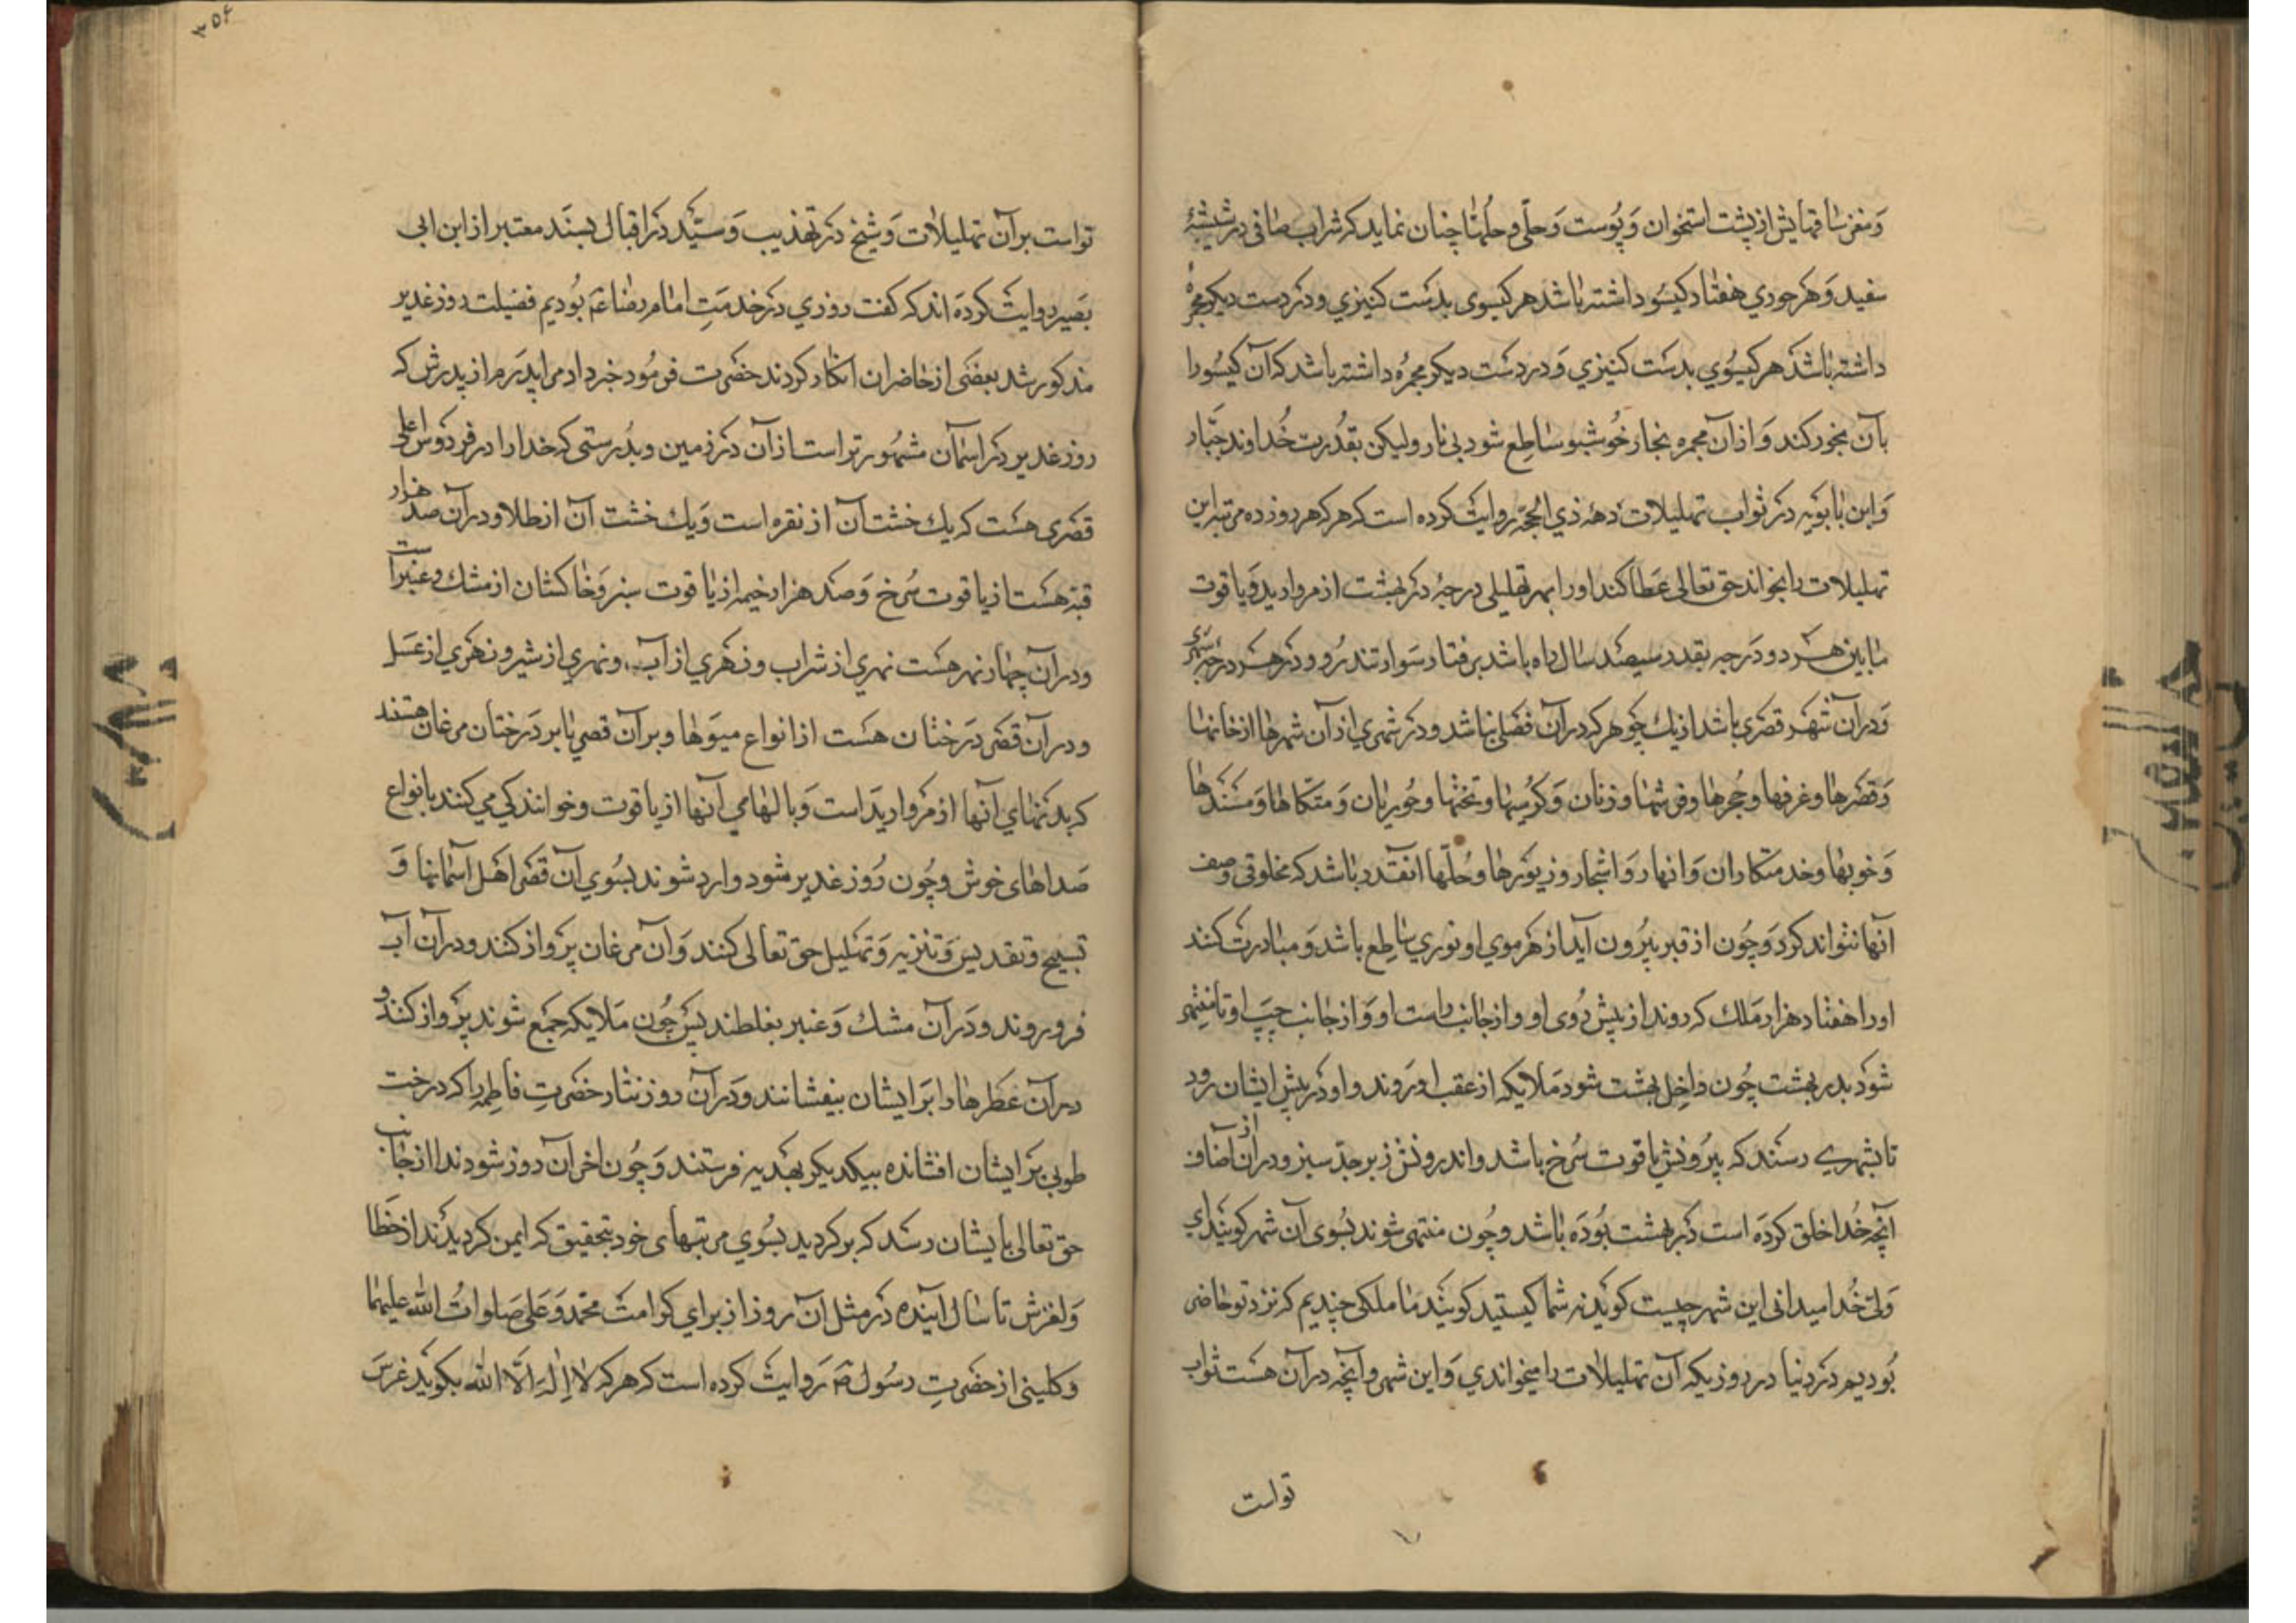 و مغز ساقهایش از پشت استخوان و پوست و حلی و حلها چنان نماید که شراب صافی در شیشهٔ
سفید و هر حوری هفتاد کیسو داشته باشد هر کیسوی بدست کنیزی و در دست دیکر مجمرهٔ
داشته باشد هر کیسوی بدست کنیزی و در دست دیکر مجمره داشته باشد که آن کیسو را
بآن بخور کند و از آن مجمره بخار خوشبو ساطع شود بی نار ولیکن بقدرت خداوند جبار
و ابن بابویه در ثواب تهلیلات دههٔ ذی الحجه روایت کرده است که هر که هر روز ده مرتبه این
تهلیلات را بخواند حق تعالی عطا کند او را بهر تهلیلی درجهٔ در بهشت از مروارید و یاقوت
ما بین هر دو درجه بقدر سیصد سال راه باشد برفتار سوار تندرو و در هر درجه شهری
و در آن شهر قصری باشد از یک جوهر که در آن فصلی نباشد و در شهری از آن شهرها از خانها
و قصرها و غرفها و حجرها و فرشها و زنان و کرسیها و تختها و حوریان و متکاها و مسندها
و خوبها و خدمتکاران و انهار و اشجار و زیورها و حلها آنقدر باشد که مخلوقی وصف
آنها نتواند کرد و چون از قبر بیرون آید از هر موی او نوری ساطع باشد و مبادرت کنند
او را هفتاد هزار ملک که روند از پیش روی او و از جانب راست او و از جانب چپ او تا منتهی
شود بدر بهشت چون داخل بهشت شود ملایکه از عقب او روند و او در پیش ایشان رود
تا بشهری رسند که بیرونش یاقوت سرخ باشد و اندرونش زبرجد سبز و در آن از اصناف
آنچه خدا خلق کرده است در بهشت بوده باشد و چون منتهی شوند بسوی آن شهر کویند ای
ولی خدا میدانی این شهر چیست کوید نه شما کیستید کویند ما ملکی چندیم که نزد تو حاضر
بودیم در دنیا در روزیکه آن تهلیلات را میخواندی و این شهر و آنچه در آن هست ثواب
تو است
٣٥٤
تو است بر آن تهلیلات و شیخ در تهذیب و سید در اقبال بسند معتبر از ابن ابی
بصیر روایت کرده اند که کفت روزی در خدمت امام رضا عم بودیم فضیلت روز غدیر
مذکور شد بعضی از حاضران انکار کردند حضرت فرمود خبر داد مرا پدرم از پدرش که
روز غدیر در اسمان مشهورتر است از آن در زمین و بدرستی که خدا را در فردوس اعلی
قصری هست که یک خشت آن از نقره است و یک خشت آن از طلا و در آن صد هزار
قبه هست از یاقوت سرخ و صد هزار خیمه از یاقوت سبز و خاکشان از مشک و عنبر است
و در آن چهار نهر هست نهری از شراب و نهری از آب و نهری از شیر و نهری از عسل
و در آن قصر درختان هست از انواع میوها و بر آن قصر یا بر درختان مرغان هستند
که بدنهای آنها از مروارید است و بالهای آنها از یاقوت و خوانندکی می کنند بانواع
صداهای خوش و چون روز غدیر شود وارد شوند بسوی آن قصر اهل آسمانها و
تسبیح و تقدیس و تنزیه و تهلیل حق تعالی کنند و آن مرغان پرواز کنند و در آن آب
فرو روند و در آن مشک و عنبر بغلطند پس چون ملایکه جمع شوند پرواز کنند و
در آن عطرها را بر ایشان بیفشانند و در آن روز نثار حضرت فاطمه را که درخت
طوبی بر ایشان افشانده بیکدیکر بهدیه فرستند و چون اخر آن روز شود ندا از جانب
حق تعالی بایشان رسد که بر کردید بسوی مرتبهای خود بتحقیق که ایمن کردیدند از خطا
و لغزش تا سال آینده در مثل آن روز از برای کرامت محمد و علی صلوات الله علیهما
و کلینی از حضرت رسول ص روایت کرده است که هر که لا اله الا الله بکوید غرس